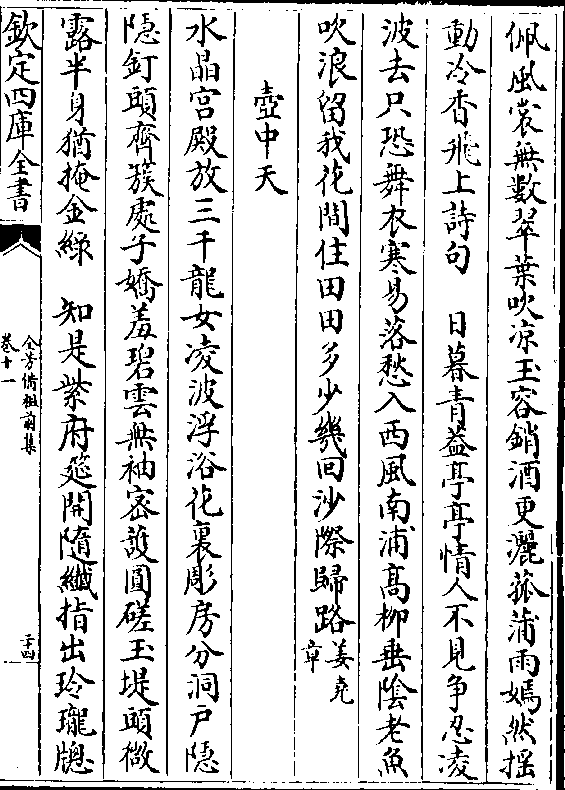 佩風裳無數翠葉吹凉玉容銷酒更灑菰蒲雨嫣然揺
動冷香飛上詩句　日暮青葢亭亭情人不見争忍凌
波去只恐舞衣寒易落愁入西風南浦髙柳垂陰老魚
吹浪留我花間住田田多少幾回沙際歸路姜堯章
壺中天
水晶宫殿放三千龍女凌波浮浴花裏彫房分洞戸隱
隱釘頭齊簇處子嬌羞碧雲無袖密護圓磋玉堤頭微
露半身猶掩金緑　知是紫府筵開隨纎指出玲瓏牕
欽定四庫全書
全芳備祖前集
卷十一
二十四